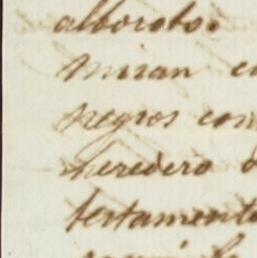 alboroto.
miran en
negros com
heredero d
testamento